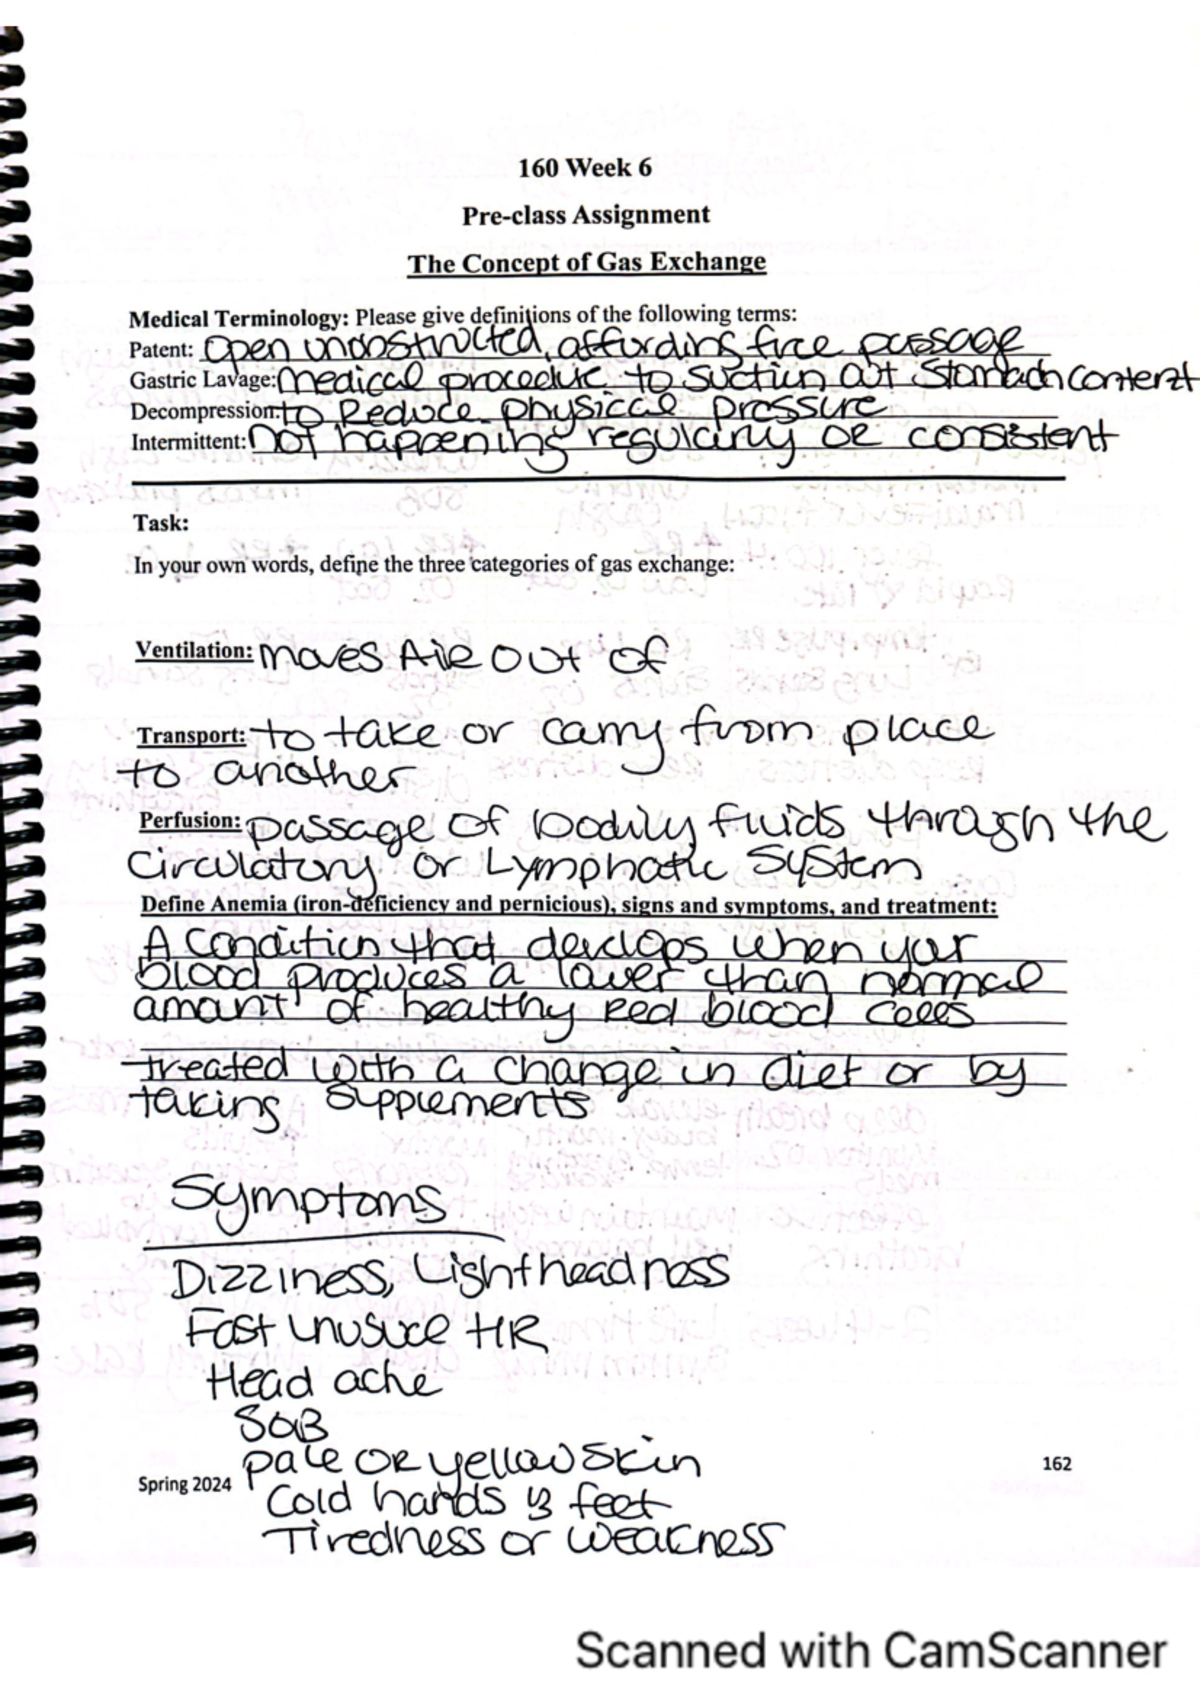 160 Week 6
Pre-class Assignment
The Concept of Gas Exchange
Medical Terminology: Please give definitions of the following terms:
Patent: Open unonstructed, affording free passage
Gastric Lavage: Medical procedure to suction out stomach content
Decompression: to Reduce physical pressure
Intermittent: Not happening regularly or consistent
Task:
In your own words, define the three categories of gas exchange:
Ventilation: moves Air out of
Transport: to take or carry from place
to another
Perfusion: passage of bodily fluids through the
Circulatory or Lymphatic System
Define Anemia (iron-deficiency and pernicious), signs and symptoms, and treatment:
A condition that develops when your
blood produces a lower than normal
amount of healthy Red blood cells
treated with a change in diet or by
taking supplements
Symptoms
Dizziness, Lightheadness
Fast HR
Head ache
SOB
pale or yellow skin
162
Spring 2024
Cold hands & feet
Tiredness or weakness
Scanned with CamScanner